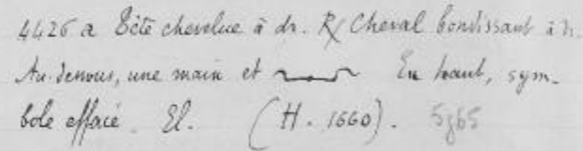 4426 a Tête chevelue à dr. R/ Cheval bondissant à dr.
Au-dessous, une main et En haut, sym-
bole effacé. El. (H. 1660). 5965